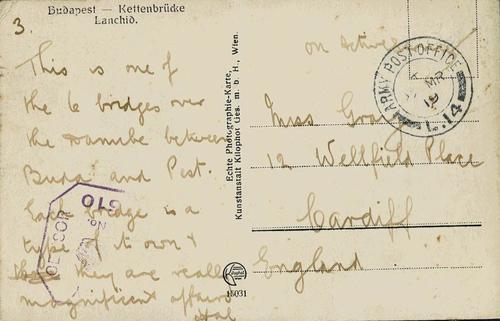 3.
Budapest — Kettenbrücke
Lánchid.
This is one of
the 6 bridges over
the Danube between
Buda and Pest.
Each bridge is a
type of it own &
they are really
magnificent affairs
Echte Photographie-Karte,
Kunstanstalt Kilophot Ges. m. b. H., Wien.
16031
on Active
ARMY POST OFFICE
MR
19
L.14
Miss
12 Wellfield Place
Cardiff
England
CENSOR
No.
610